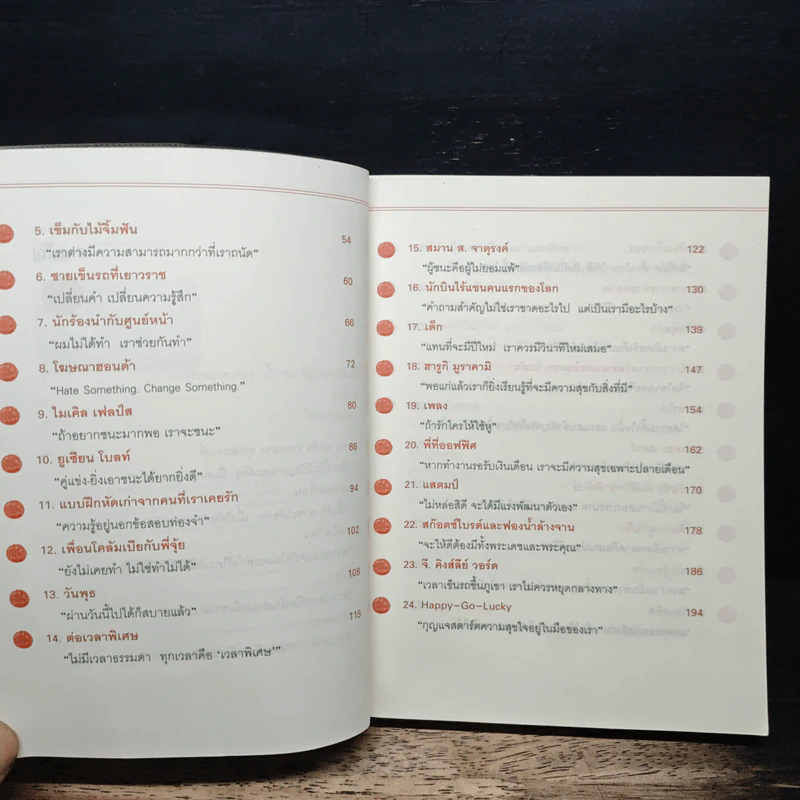 5. เข็มกับไม้จิ้มฟัน 54
"เราต่างมีความสามารถมากกว่าที่เราถนัด"
6. ชายเข็นรถที่เยาวราช 60
"เปลี่ยนคำ เปลี่ยนความรู้สึก"
7. นักร้องนำกับศูนย์หน้า 66
"ผมไม่ได้ทำ เราช่วยกันทำ"
8. โฆษณาฮอนด้า 72
"Hate Something. Change Something."
9. ไมเคิล เฟลป์ส 80
"ถ้าอยากชนะมากพอ เราจะชนะ"
10. ยูเซียน โบลท์ 86
"คู่แข่ง-ยิ่งเอาชนะได้ยากยิ่งดี"
11. แบบฝึกหัดเก่าจากคนที่เราเคยรัก 94
"ความรู้อยู่นอกข้อสอบท่องจำ"
12. เพื่อนโคลัมเบียกับพี่จุ้ย 102
"ยังไม่เคยทำ ไม่ใช่ทำไม่ได้"
13. วันพุธ 108
"ผ่านวันนี้ไปได้ก็สบายแล้ว"
14. ต่อเวลาพิเศษ 115
"ไม่มีเวลาธรรมดา ทุกเวลาคือ 'เวลาพิเศษ'"
15. สมาน ส. จาตุรงค์ 122
"ผู้ชนะคือผู้ไม่ยอมแพ้"
16. นักบินไร้แขนคนแรกของโลก 130
"คำถามสำคัญไม่ใช่เราขาดอะไรไป แต่เป็นเรามีอะไรบ้าง"
17. เด็ก 139
"แทนที่จะมีปีใหม่ เราควรมีวินาทีใหม่เสมอ"
18. ฮารูกิ มูราคามิ 147
"พอแก่แล้วเราก็ยิ่งเรียนรู้ที่จะมีความสุขกับสิ่งที่มี"
19. เพลง 154
"ถ้ารักใครให้ใช้หู"
20. พี่ที่ออฟฟิศ 162
"หากทำงานรอรับเงินเดือน เราจะมีความสุขเฉพาะปลายเดือน"
21. แสตมป์ 170
"ไม่หล่อสิดี จะได้มีแรงพัฒนาตัวเอง"
22. สก๊อตช์ไบรต์และฟองน้ำล้างจาน 178
"จะให้ดีต้องมีทั้งพระเดชและพระคุณ"
23. จี. คิงส์ลีย์ วอร์ด 186
"เวลาเข็นรถขึ้นภูเขา เราไม่ควรหยุดกลางทาง"
24. Happy-Go-Lucky 194
"กุญแจสตาร์ตความสุขใจอยู่ในมือของเรา"